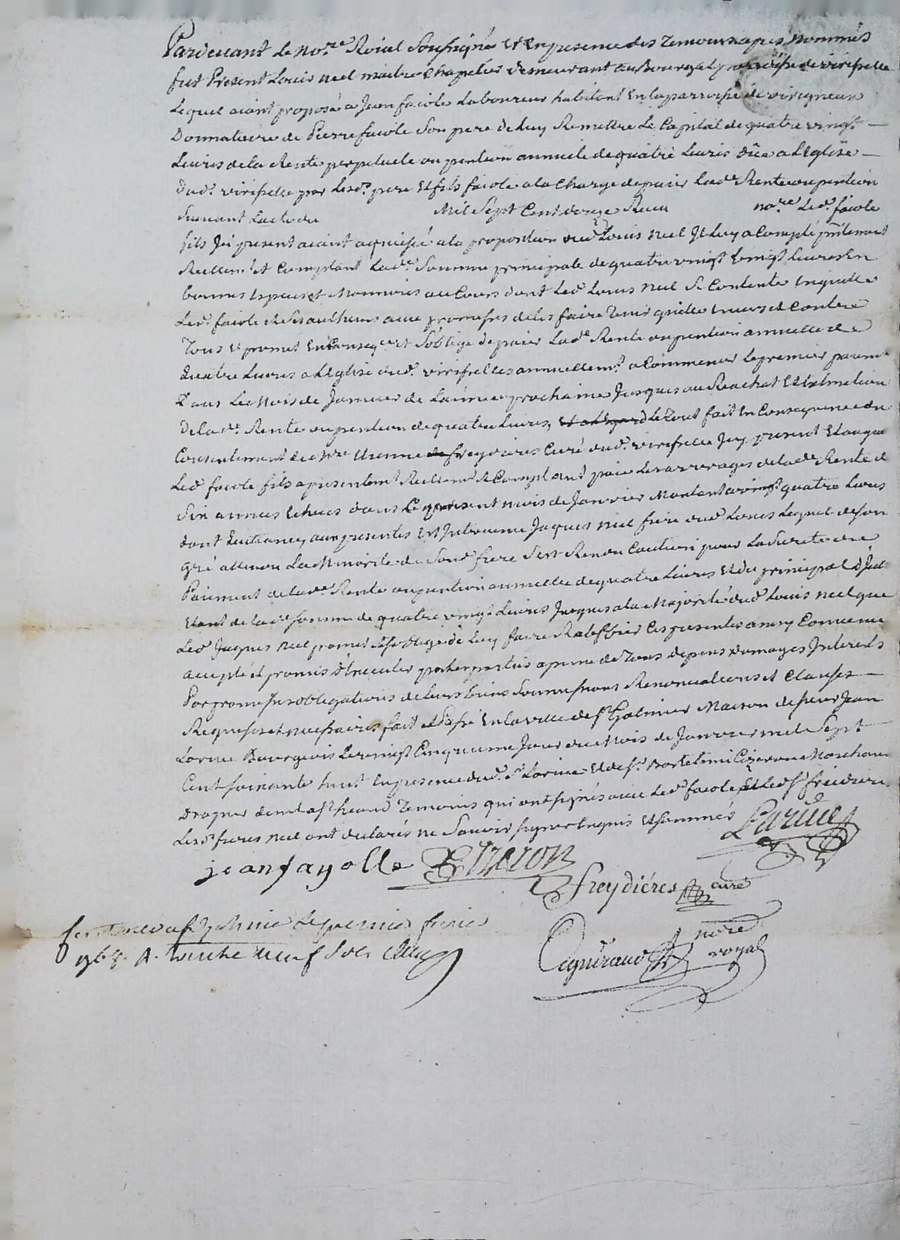 Pardevant Le no.re Roial Soussigné Et En presence des Temoins apres nommés
fut Present Louis neel maitre Chapelier demeurant au Bourg paroisse de virifelle
Lequel aiant proposé a Jean facole Laboureur habitant En la parroisse de virigneux
Donnataire de Pierre facole Son pere de Luy Remettre Le Capital de quatre vingt
Livres de la Rente perpetuele ou pention annuele de quatre Livres düe a L'Eglise
dud. virifelle par Lesd. pere Et fils facole a la Charge de paier Lad. Rente ou pention
Suivant L'acte du Mil Sept Cent Reçu no.re Led. facole
fils Icy present aiant acquiescé a la proposition dud. Louis neel Il Luy a Compté presentement
Reellem.t et Comptant Lad.e Somme principale de quatre vingt Livres En
bonnes Especes et Monnoies au Cours dont Led. Louis neel Se Contente En quitte
Led. facole Et Ses autheurs avec promesses de les faire Tenir quitte Envers et Contre
Tous Et promet En Conseq.ce Et S'oblige de paier Lad. Rente ou pention annuelle de
quatre Livres a L'Eglise dud. virifelles annuellem.t a Commencer Le premier paiem.t
Dans Le Mois de Janvier de L'année prochaine Jusques au Rachat Et Extinction
De lad.e Rente ou pention de quatre Livres, Le Tout fait En Consequence du
Consentement de M.re Etienne freydieres Curé dud. virifelle Icy present Et auquel
Led. facole fils a presentem.t Reellem.t Et Compt.ant paié Les arrerages de lad.e Rente de
Six années Echues dans Le present mois de Janvier Montant a vingt quatre Livres
dont Quittance, aux presentes Est Intervenu Jaques neel frere dud. Louis Lequel de Son
gré attendu La Minorité de Sond. frere S'est Rendu Caution pour La Sureté du
Paiement de lad.e Rente ou pention annuelle de quatre Livres Et du principal d'Icelle
Etant de lad.e Somme de quatre vingt Livres Jusques a la Majorité dud. Louis neel que
Led. Jaques neel promet Et S'oblige de Luy faire Ratiffier Ces presentes ainsy Convenu
accepté Et promis Executer par les parties a peine de Tous depens Domages Interets
Par promesses obligations de Leurs biens Soumissions Renonciations et Clauses
Requises et necessaires fait Et Passé En la ville de S.t Galmier Maison de sieur Jean
Larive Bourgeois Le vingt Cinquieme Jour du Mois de Janvier mil Sept
Cent Soixante huit En presence dud. s.r Larive Et de s.r Bartelemi Marchand
Drapier dud. S.t Temoins qui ont signés avec Led. facole Et Led. s.r freydieres
Lesd. freres neel ont declarés ne Savoir Signer Enquis Et Sommés
Larive
jean fayolle
freydiéres curé
no.re
royal
a S.t Galmier Le premier fevrier
1768. R. Treize neuf Sols